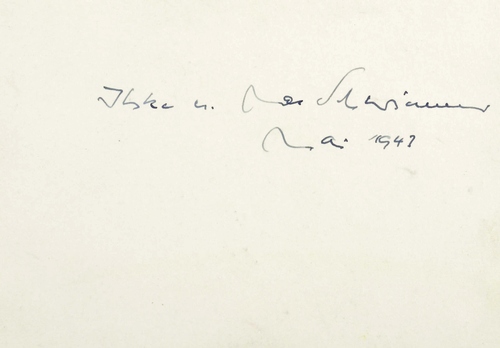 Ilske u. Max Schwimmer
Mai 1943